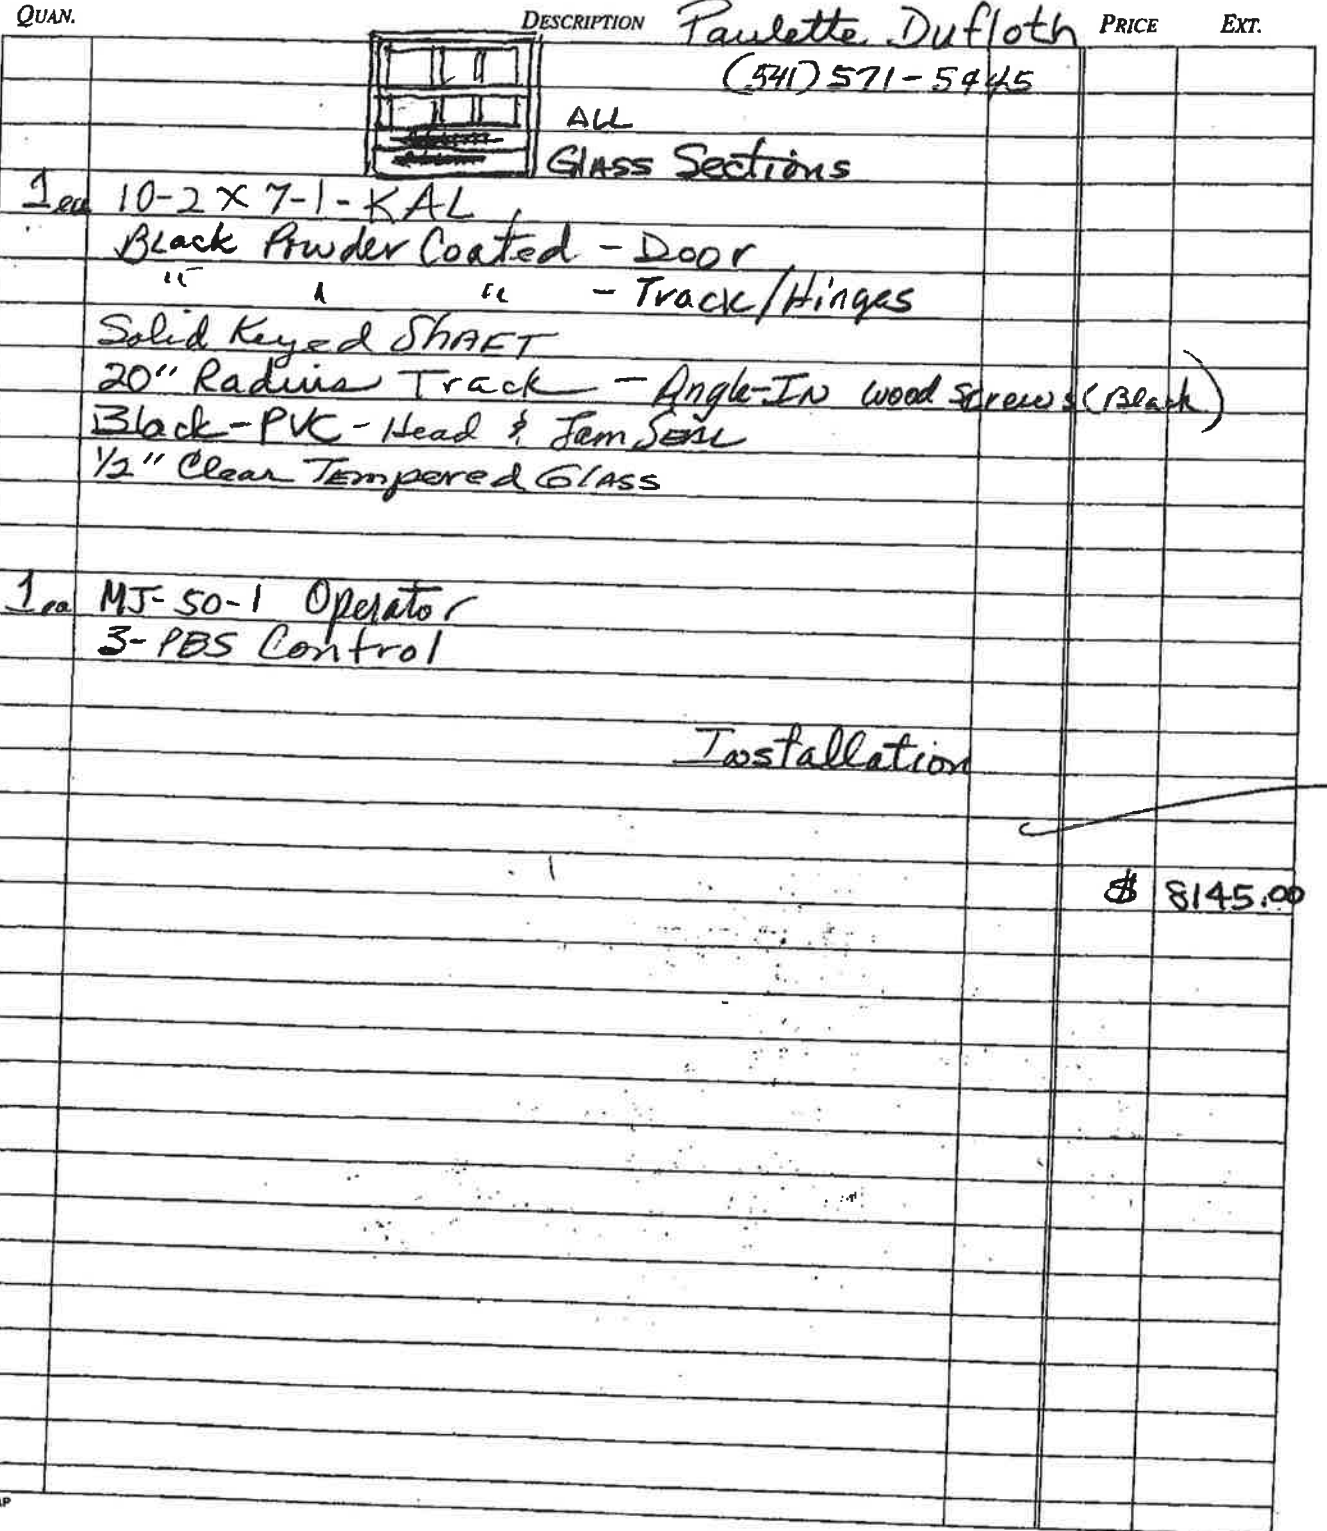 QUAN. DESCRIPTION Paulette Dufloth PRICE EXT.
(541) 571-5445
ALL
Glass Sections
1 ea 10-2 X 7-1-KAL
Black Powder Coated - Door
" " " - Track/Hinges
Solid Keyed SHAFT
20" Radius Track - Angle-IN wood screws (Black)
Black-PVC-Head & Jam Seal
1/2" Clear Tempered Glass
1 ea MJ-50-1 Operator
3-PBS Control
Installation
$ 8145.00